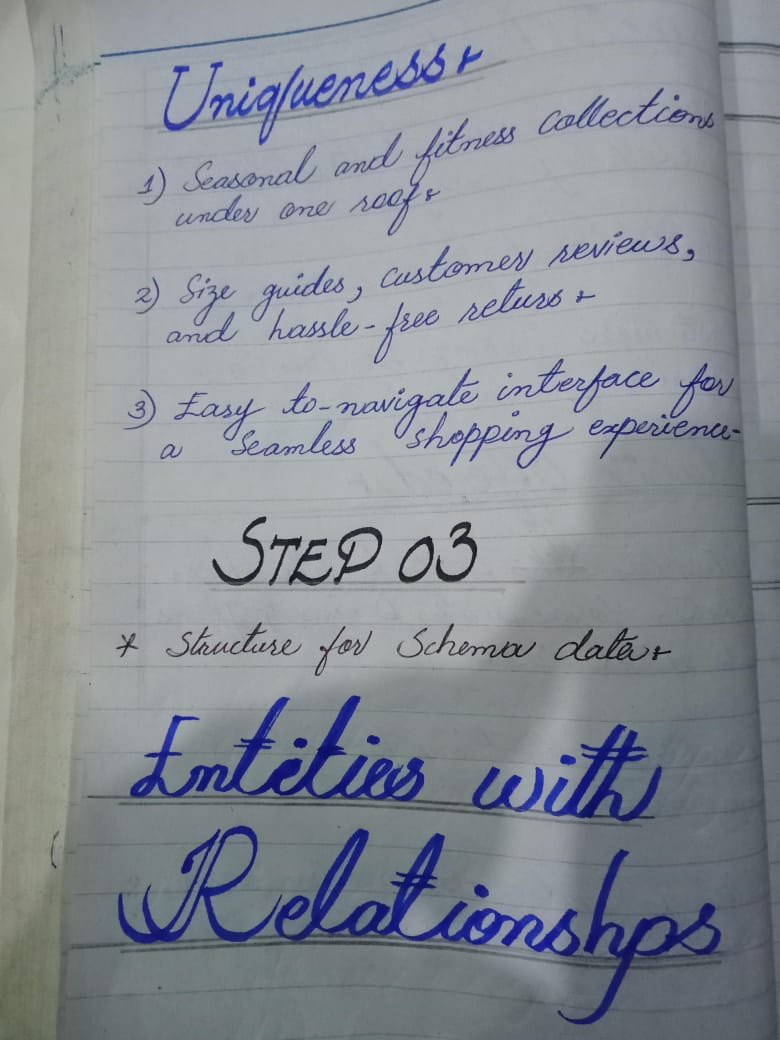 Uniqueness:
1) Seasonal and fitness collections
under one roof.
2) Size guides, customer reviews,
and hassle-free returs.
3) Easy to-navigate interface for
a seamless shopping experience
STEP 03
* Structure for Schema data:
Entities with
Relationshps